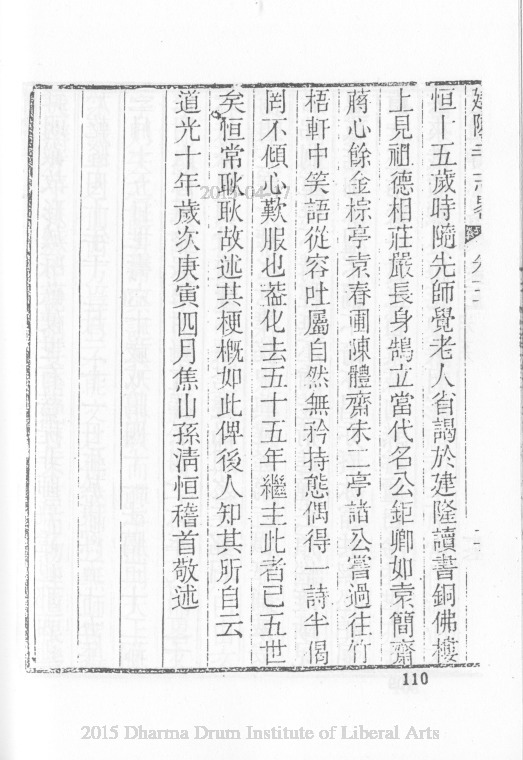 恒十五歲時隨先師覺老人省謁於建隆讀書銅佛樓
上見祖德相莊嚴長身鵠立當代名公鉅卿如袁簡齋
蔣心餘金棕亭袁春圃陳體齋朱二亭諸公嘗過往竹
梧軒中笑語從容吐屬自然無矜持態偶得一詩半偈
罔不傾心歎服也葢化去五十五年繼主此者已五世
矣恒常耿耿故述其梗概如此俾後人知其所自云
道光十年歲次庚寅四月焦山孫清恒稽首敬述
110
2015 Dharma Drum Institute of Liberal Arts